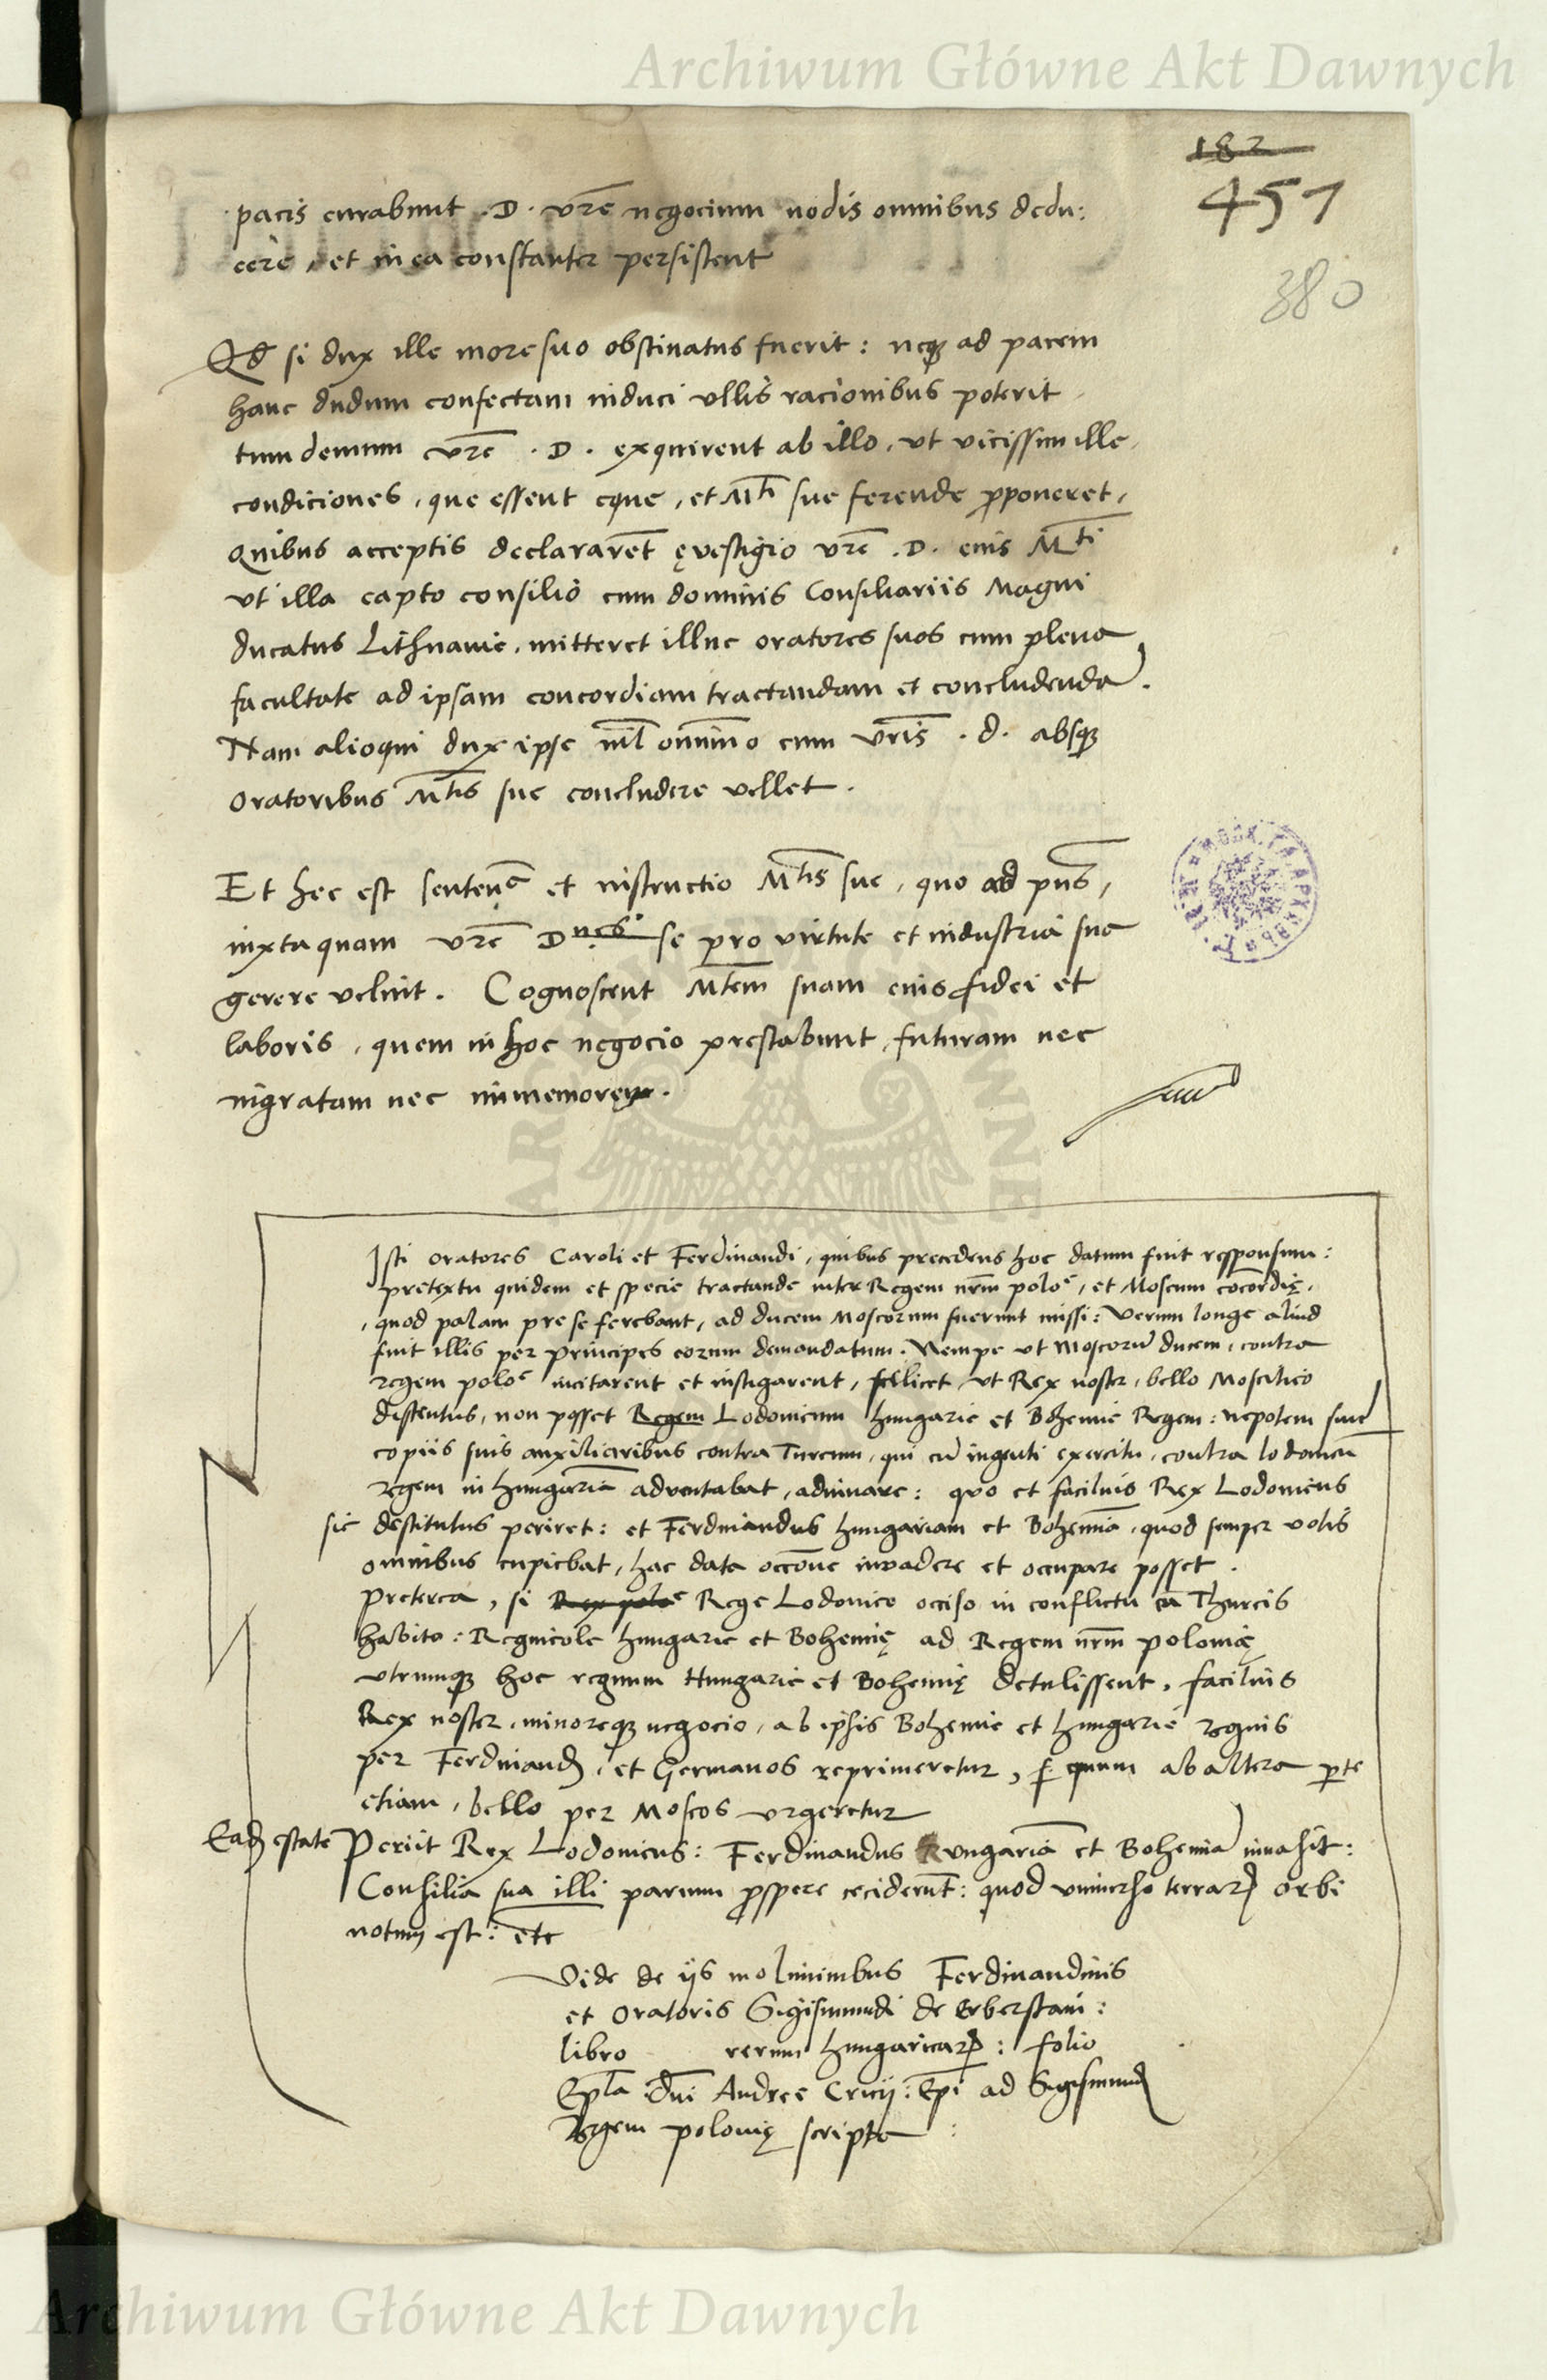 Archiwum Główne Akt Dawnych
182
457
380
pacis curabunt . D . vr̄e negocium nodis omnibus dedu:
cere, et in ea constanter persistent
Qd si dux ille more suo obstinatus fuerit : neqꝫ ad pacem
hanc dudum confectam induci ullis racionibus poterit
tum demum vr̄e . D . exquirent ab illo, ut vicissim ille
condiciones, que essent eque, et Mti sue ferende proponeret,
Quibus acceptis declararēt ęvestigio vr̄e . D . eius Mti
ut illa capto consilio cum dominis Consiliariis Magni
ducatus Lithuanie, mitteret illuc oratores suos cum plena
facultate ad ipsam concordiam tractandam et concludendā.
Nam alioqui dux ipse nil omnino cum vr̄is . d . absqꝫ
oratoribus Mtis sue concludere vellet .
Et hec est sentenc et instructio Mtis sue, quo ad pn̄s,
iuxta quam vr̄e Dnes se pro virtute et industria sua
gerere velint . Cognoscent Mtem suam eius fidei et
laboris, quem in hoc negocio prestabunt, futuram nec
ingratam nec immemorem .
Isti oratores Caroli et Ferdinandi, quibus precedens hoc datum fuit responsum :
pretextu quidem et specie tractande inter Regem nr̄m polo͞e, et Moscum cōcordię,
quod palam pre se ferebant, ad ducem Moscorum fuerunt missi : Verum longe aliud
fuit illis per principes eorum demandatum . Nempe ut Moscorū ducem, contra
regem polo͞e incitarent et instigarent, scilicet, ut Rex noster, bello Moscitico
distentus, non posset Regem Lodovicum hungarie et Bohemie Regem : nepotem suū
copiis suis auxiliaribus contra Turcum, qui cū ingenti exercitu, contra lodovicū
regem in hungariā adventabat, adiuvare : quo et facilius Rex Lodovicus
sic destitutus periret : et Ferdinandus hungariam et Bohemiā, quod semper votis
omnibus cupiebat, hac data occōne invadere et occupare posset .
Preterea, si Rex polo͞e Rege Lodovico occiso in conflictu cū Thurcis
habito : Regnicole hungarie et Bohemię ad Regem nr̄m polonię
utrumqꝫ hoc regnum Hungarie et Bohemię detulissent, facilius
Rex noster, minoreqꝫ negocio, ab ipsis Bohemie et hungarie regnis
per Ferdinandꝫ, et Germanos reprimeretur, quum ab altera parte
etiam, bello per Moscos urgeretur
Eadꝫ estate Periit Rex Lodovicus : Ferdinandus hungariā et Bohemiā invasit :
Consilia sua illi parum prospere ceciderūt : quod universo terrarꝫ orbi
notum est : etc
Vide de iis moliminibus Ferdinandinis
et oratoris Sigismundi de Erberstain :
libro rerum hungaricarꝫ : folio
Ep̄la dn̄i Andree Cricii : Ep̄i ad Sigismundꝫ
Regem polonię scripta :
Archiwum Główne Akt Dawnych